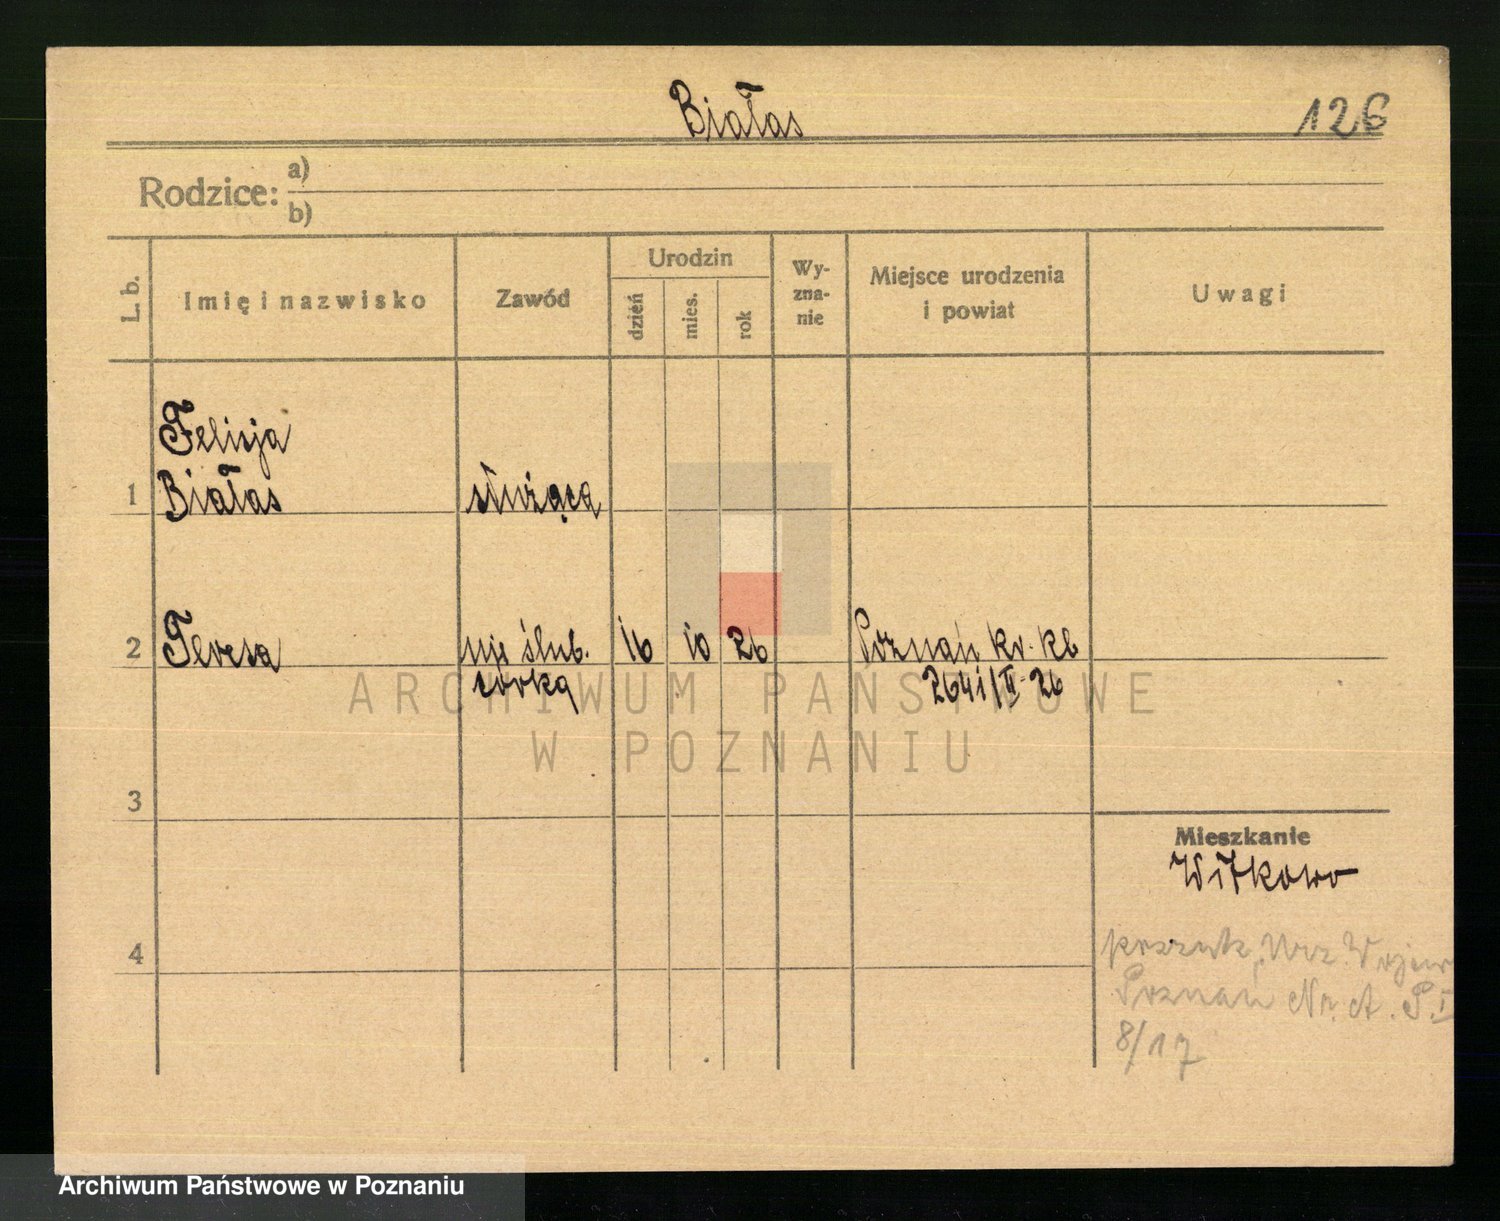 Białas
126
Rodzice: a)
b)
L. b.
Imię i nazwisko
Zawód
Urodzin
dzień
mies.
rok
Wy-
zna-
nie
Miejsce urodzenia
i powiat
Uwagi
Felicja
1 Białas służąca
2 Teresa nie ślub. 16 10 26 Poznań kr. kb
córka 2641/II 26
ARCHIWUM PAŃSTWOWE
W POZNANIU
3
Mieszkanie
Witkowo
4
Wojew
Poznań Nr. A. P. I
8/17
Archiwum Państwowe w Poznaniu